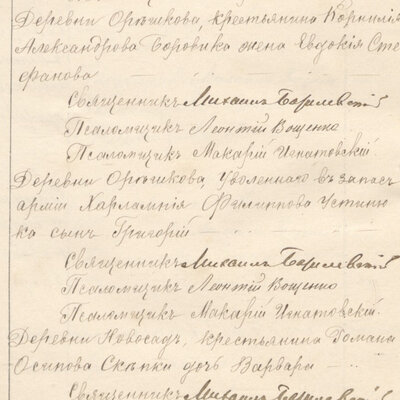 Деревни Орѣшкова, крестьянина Корнилія
Александрова Боровика жена Евдокія Сте
фанова
Священникъ Михаилъ
Псаломщикъ Леонтій Вощенко
Псаломщикъ Макарій Игнатовскій
Деревни Орѣшкова, уволеннаго въ запасъ
арміи Харлампія Филиппова Устиню
ка сынъ Григорій
Священникъ Михаилъ
Псаломщикъ Леонтій Вощенко
Псаломщикъ Макарій Игнатовскій.
Деревни Новосадъ, крестьянина Романа
Осипова Скѣпки дочь Варвара
Священникъ Михаилъ